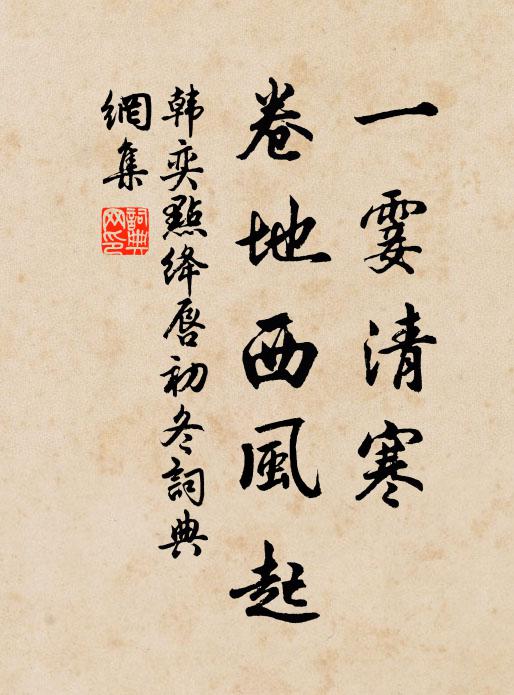 一霎清寒
卷地西風起
韩奕點绛唇初冬詞典
網集
詞典
网印